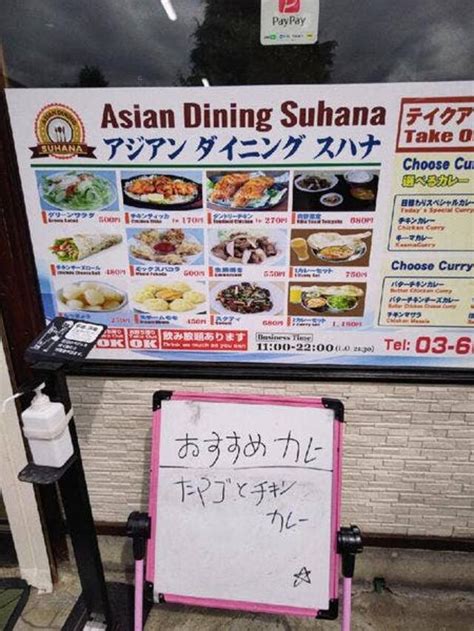 PayPay
Asian Dining Suhana
アジアン ダイニング スハナ
SUHANA
テイクア
Take O
グリーンサラダ 500円
Green Salad
チキンティッカ 1p 170円
タンドリーチキン
270円
680円
チキンチーズロール 480円
ミックスパコラ 500円
550円
1カレーセット 750円
450円
680円
2カレーセット 1,180円
Choose Cu
選べるカレー
日替わりスペシャルカレー
Today's Special Curry
チキンカレー
Chicken Curry
キーマカレー
Choose Curry
バターチキンカレー
Butter Chicken Curry
バターチキンチーズカレー
チキンマサラ
Chicken Masala
OK OK
飲み放題あります
Drink as much as you can
Business Time
11:00-22:00(L.O. 21:30)
Tel: 03-6
おすすめ カレー
たマゴとチキン
カレー